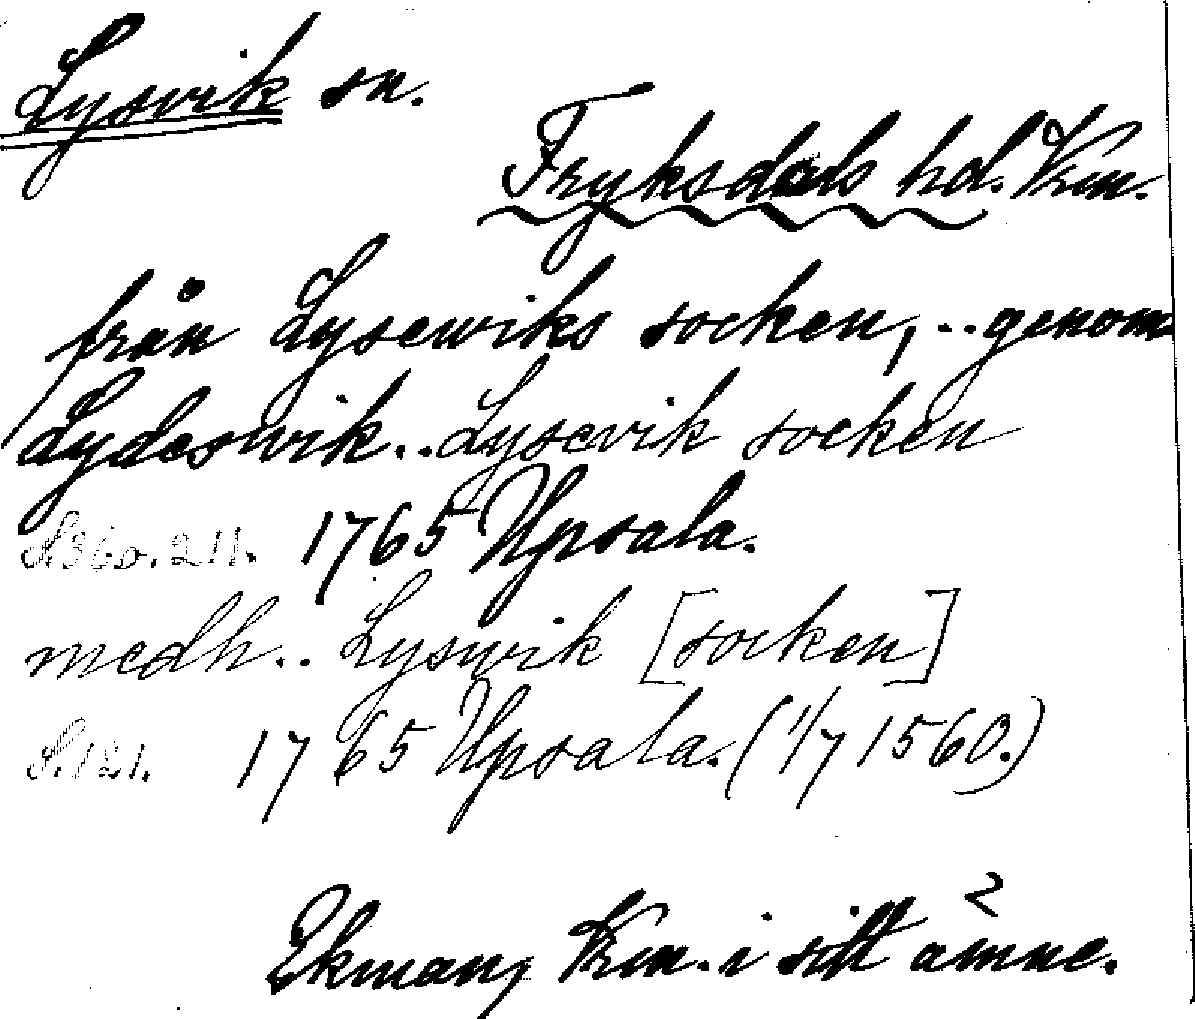 Lysvik sn.
Fryksdals hd. Vrm.
från Lysewiks socken, .. genom
Lydeswik .. Lysevik socken
S. 211. 1765 Upsala.
medh .. Lyswik [socken]
S. 121. 1765 Upsala. (1/7 1560.)
Ekman, Vrm. i sitt ämne.